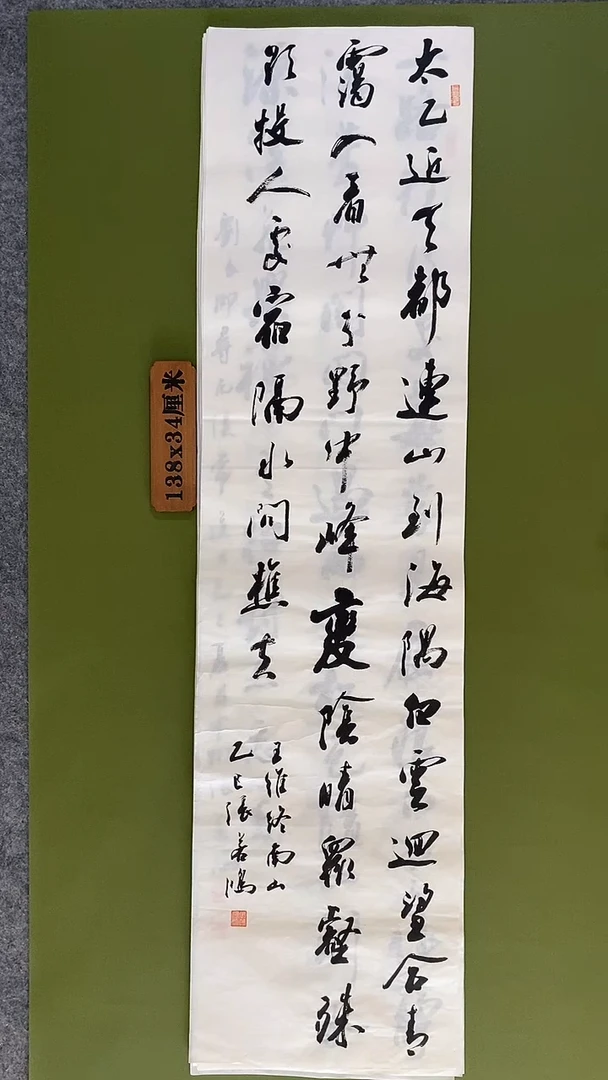 太乙近天都連山到海隅白雲迴望合青
靄入看無分野中峰變陰晴眾壑殊
欲投人處宿隔水問樵夫
王維終南山
乙巳張鴻
138x34厘米